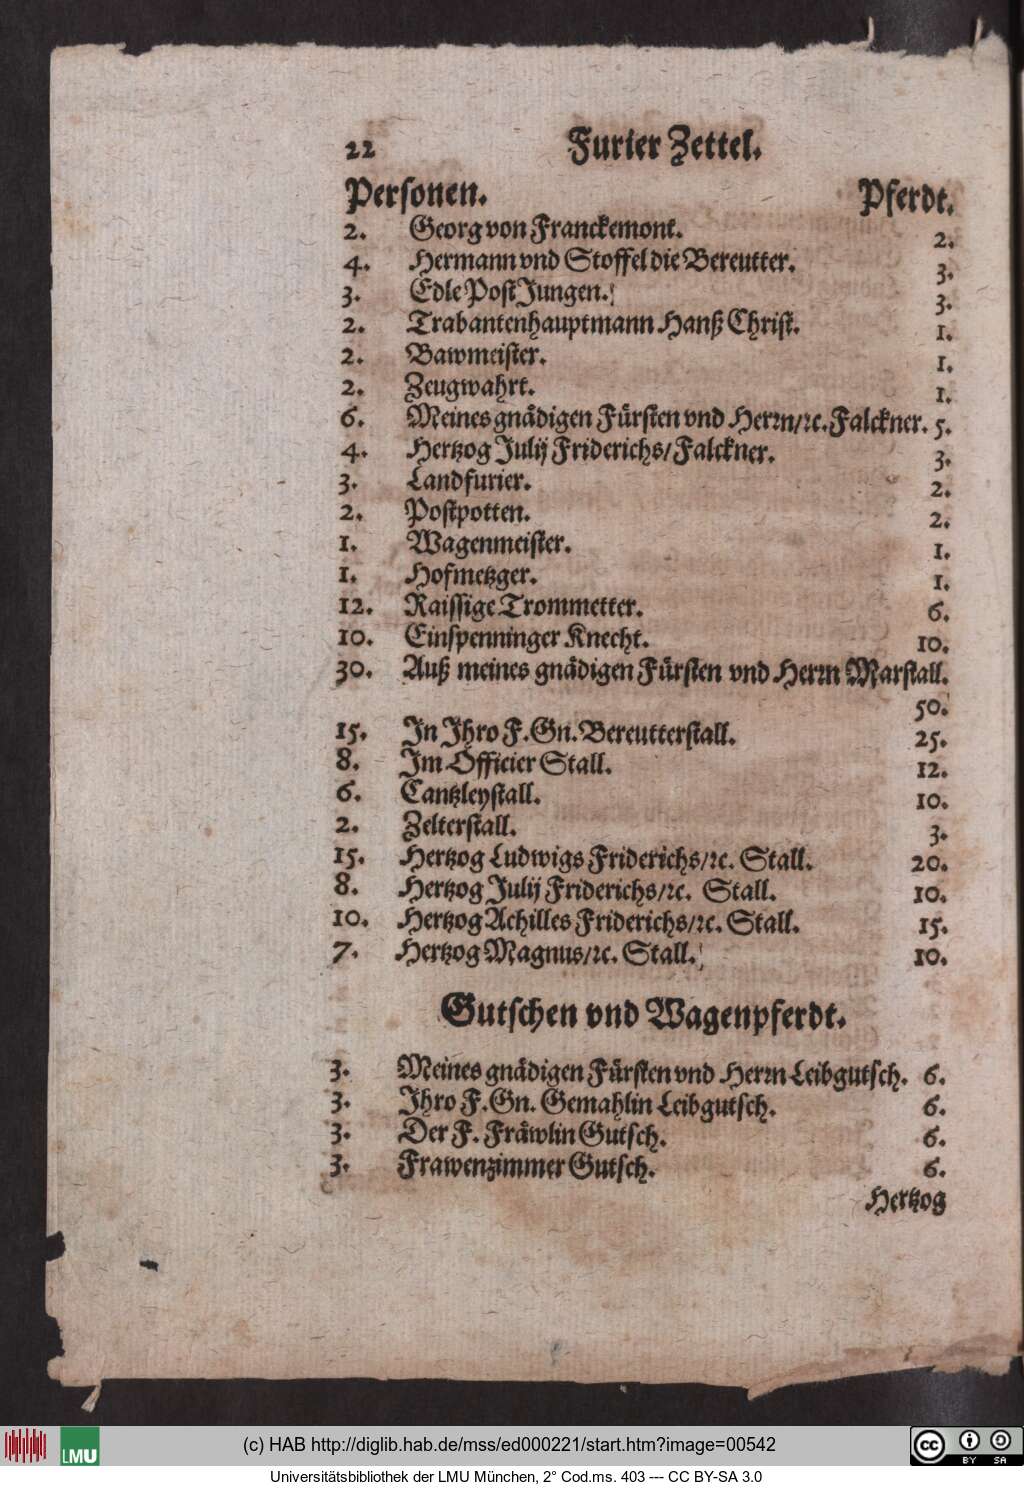 22 Furier Zettel.
Personen. Pferdt.
2. Georg von Franckemont. 2.
4. Hermann vnd Stoffel die Bereutter. 3.
3. Edle Post Jungen. 3.
2. Trabantenhauptmann Hanß Christ. 1.
2. Bawmeister. 1.
2. Zeugwahrt. 1.
6. Meines gnådigen Fürsten vnd Herrn/ꝛc. Falckner. 5.
4. Hertzog Julij Friderichs/ Falckner. 3.
3. Landfurier. 2.
2. Postpotten. 2.
1. Wagenmeister. 1.
1. Hofmetzger. 1.
12. Raissige Trommetter. 6.
10. Einspenninger Knecht. 10.
30. Auß meines gnådigen Fürsten vnd Herrn Marstall.
50.
15. In Ihro F. Gn. Bereutterstall. 25.
8. Im Officier Stall. 12.
6. Cantzleystall. 10.
2. Zelterstall. 3.
15. Hertzog Ludwigs Friderichs/ꝛc. Stall. 20.
8. Hertzog Julij Friderichs/ꝛc. Stall. 10.
10. Hertzog Achilles Friderichs/ꝛc. Stall. 15.
7. Hertzog Magnus/ꝛc. Stall. 10.
Gutschen vnd Wagenpferdt.
3. Meines gnådigen Fürsten vnd Herrn Leibgutsch. 6.
3. Ihro F. Gn. Gemahlin Leibgutsch. 6.
3. Der F. Fråwlin Gutsch. 6.
3. Frawenzimmer Gutsch. 6.
Hertzog
LMU
(c) HAB http://diglib.hab.de/mss/ed000221/start.htm?image=00542
cc BY SA
Universitätsbibliothek der LMU München, 2° Cod.ms. 403 --- CC BY-SA 3.0